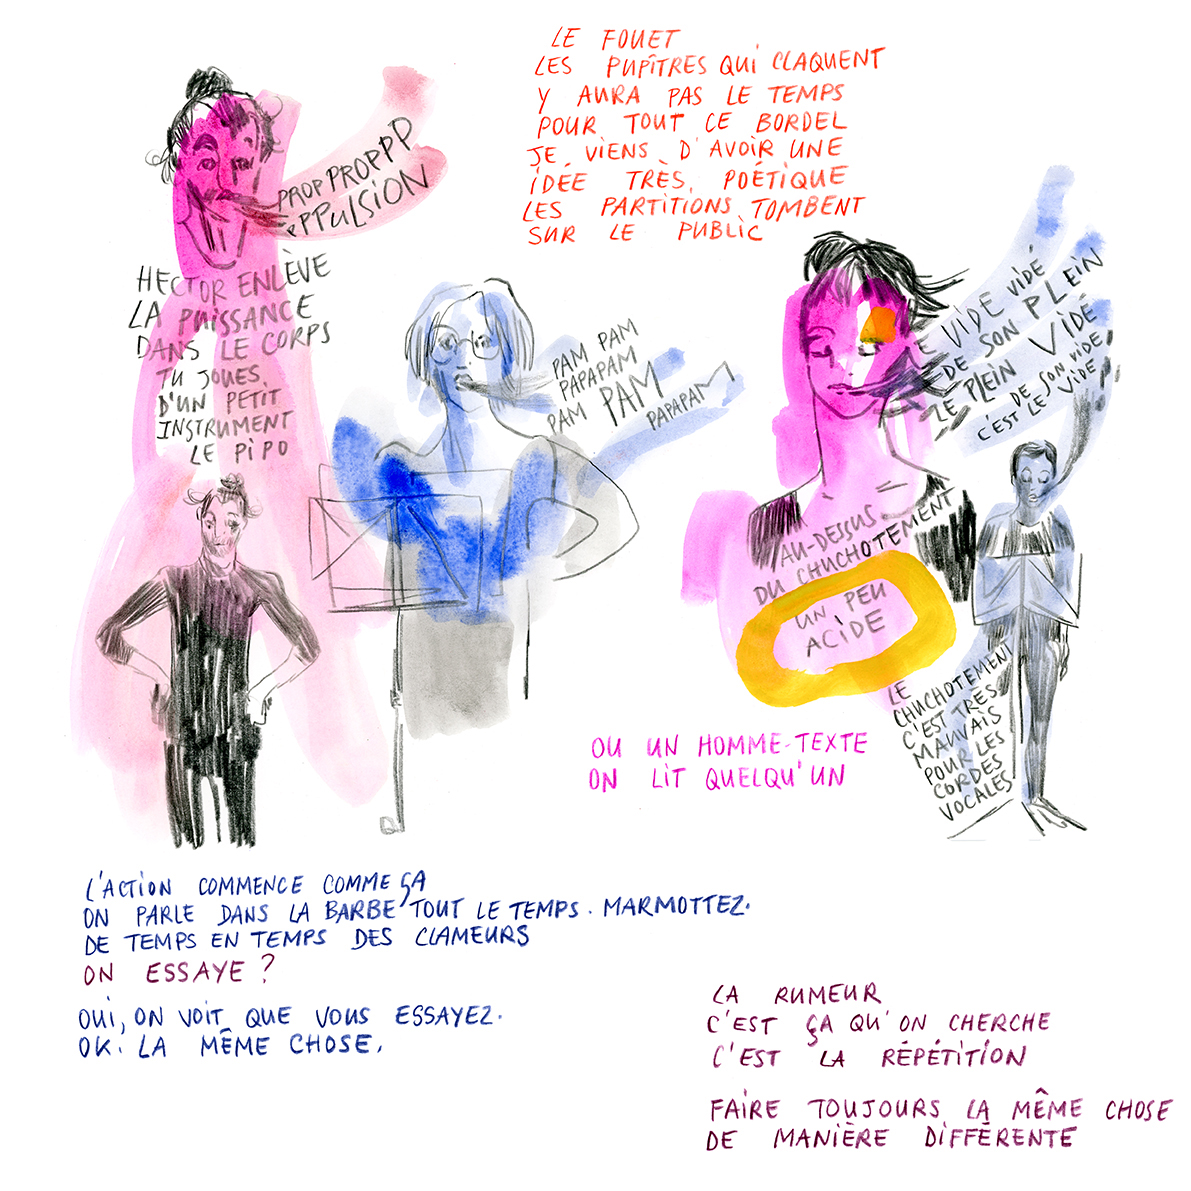 LE FOUET
LES PUPÎTRES QUI CLAQUENT
Y AURA PAS LE TEMPS
POUR TOUT CE BORDEL
JE VIENS D'AVOIR UNE
IDÉE TRÈS POÉTIQUE
LES PARTITIONS TOMBENT
SUR LE PUBLIC
PROP PROPPP
PPPULSION
HECTOR ENLÈVE
LA PUISSANCE
DANS LE CORPS
TU JOUES
D'UN PETIT
INSTRUMENT
LE PIPO
PAM PAM
PAPAPAM
PAM PAM
PAPAPAM
LE VIDE VIDÉ
DE SON PLEIN
LE PLEIN VIDÉ
DE SON VIDE
C'EST LE VIDE
AU-DESSUS
DU CHUCHOTEMENT
UN PEU
ACIDE
LE
CHUCHOTEMENT
C'EST TRÈS
MAUVAIS
POUR LES
CORDES
VOCALES
OU UN HOMME-TEXTE
ON LIT QUELQU'UN
L'ACTION COMMENCE COMME ÇA
ON PARLE DANS LA BARBE TOUT LE TEMPS. MARMOTTEZ.
DE TEMPS EN TEMPS DES CLAMEURS
ON ESSAYE ?
OUI, ON VOIT QUE VOUS ESSAYEZ.
OK. LA MÊME CHOSE.
LA RUMEUR
C'EST ÇA QU'ON CHERCHE
C'EST LA RÉPÉTITION
FAIRE TOUJOURS LA MÊME CHOSE
DE MANIÈRE DIFFÉRENTE